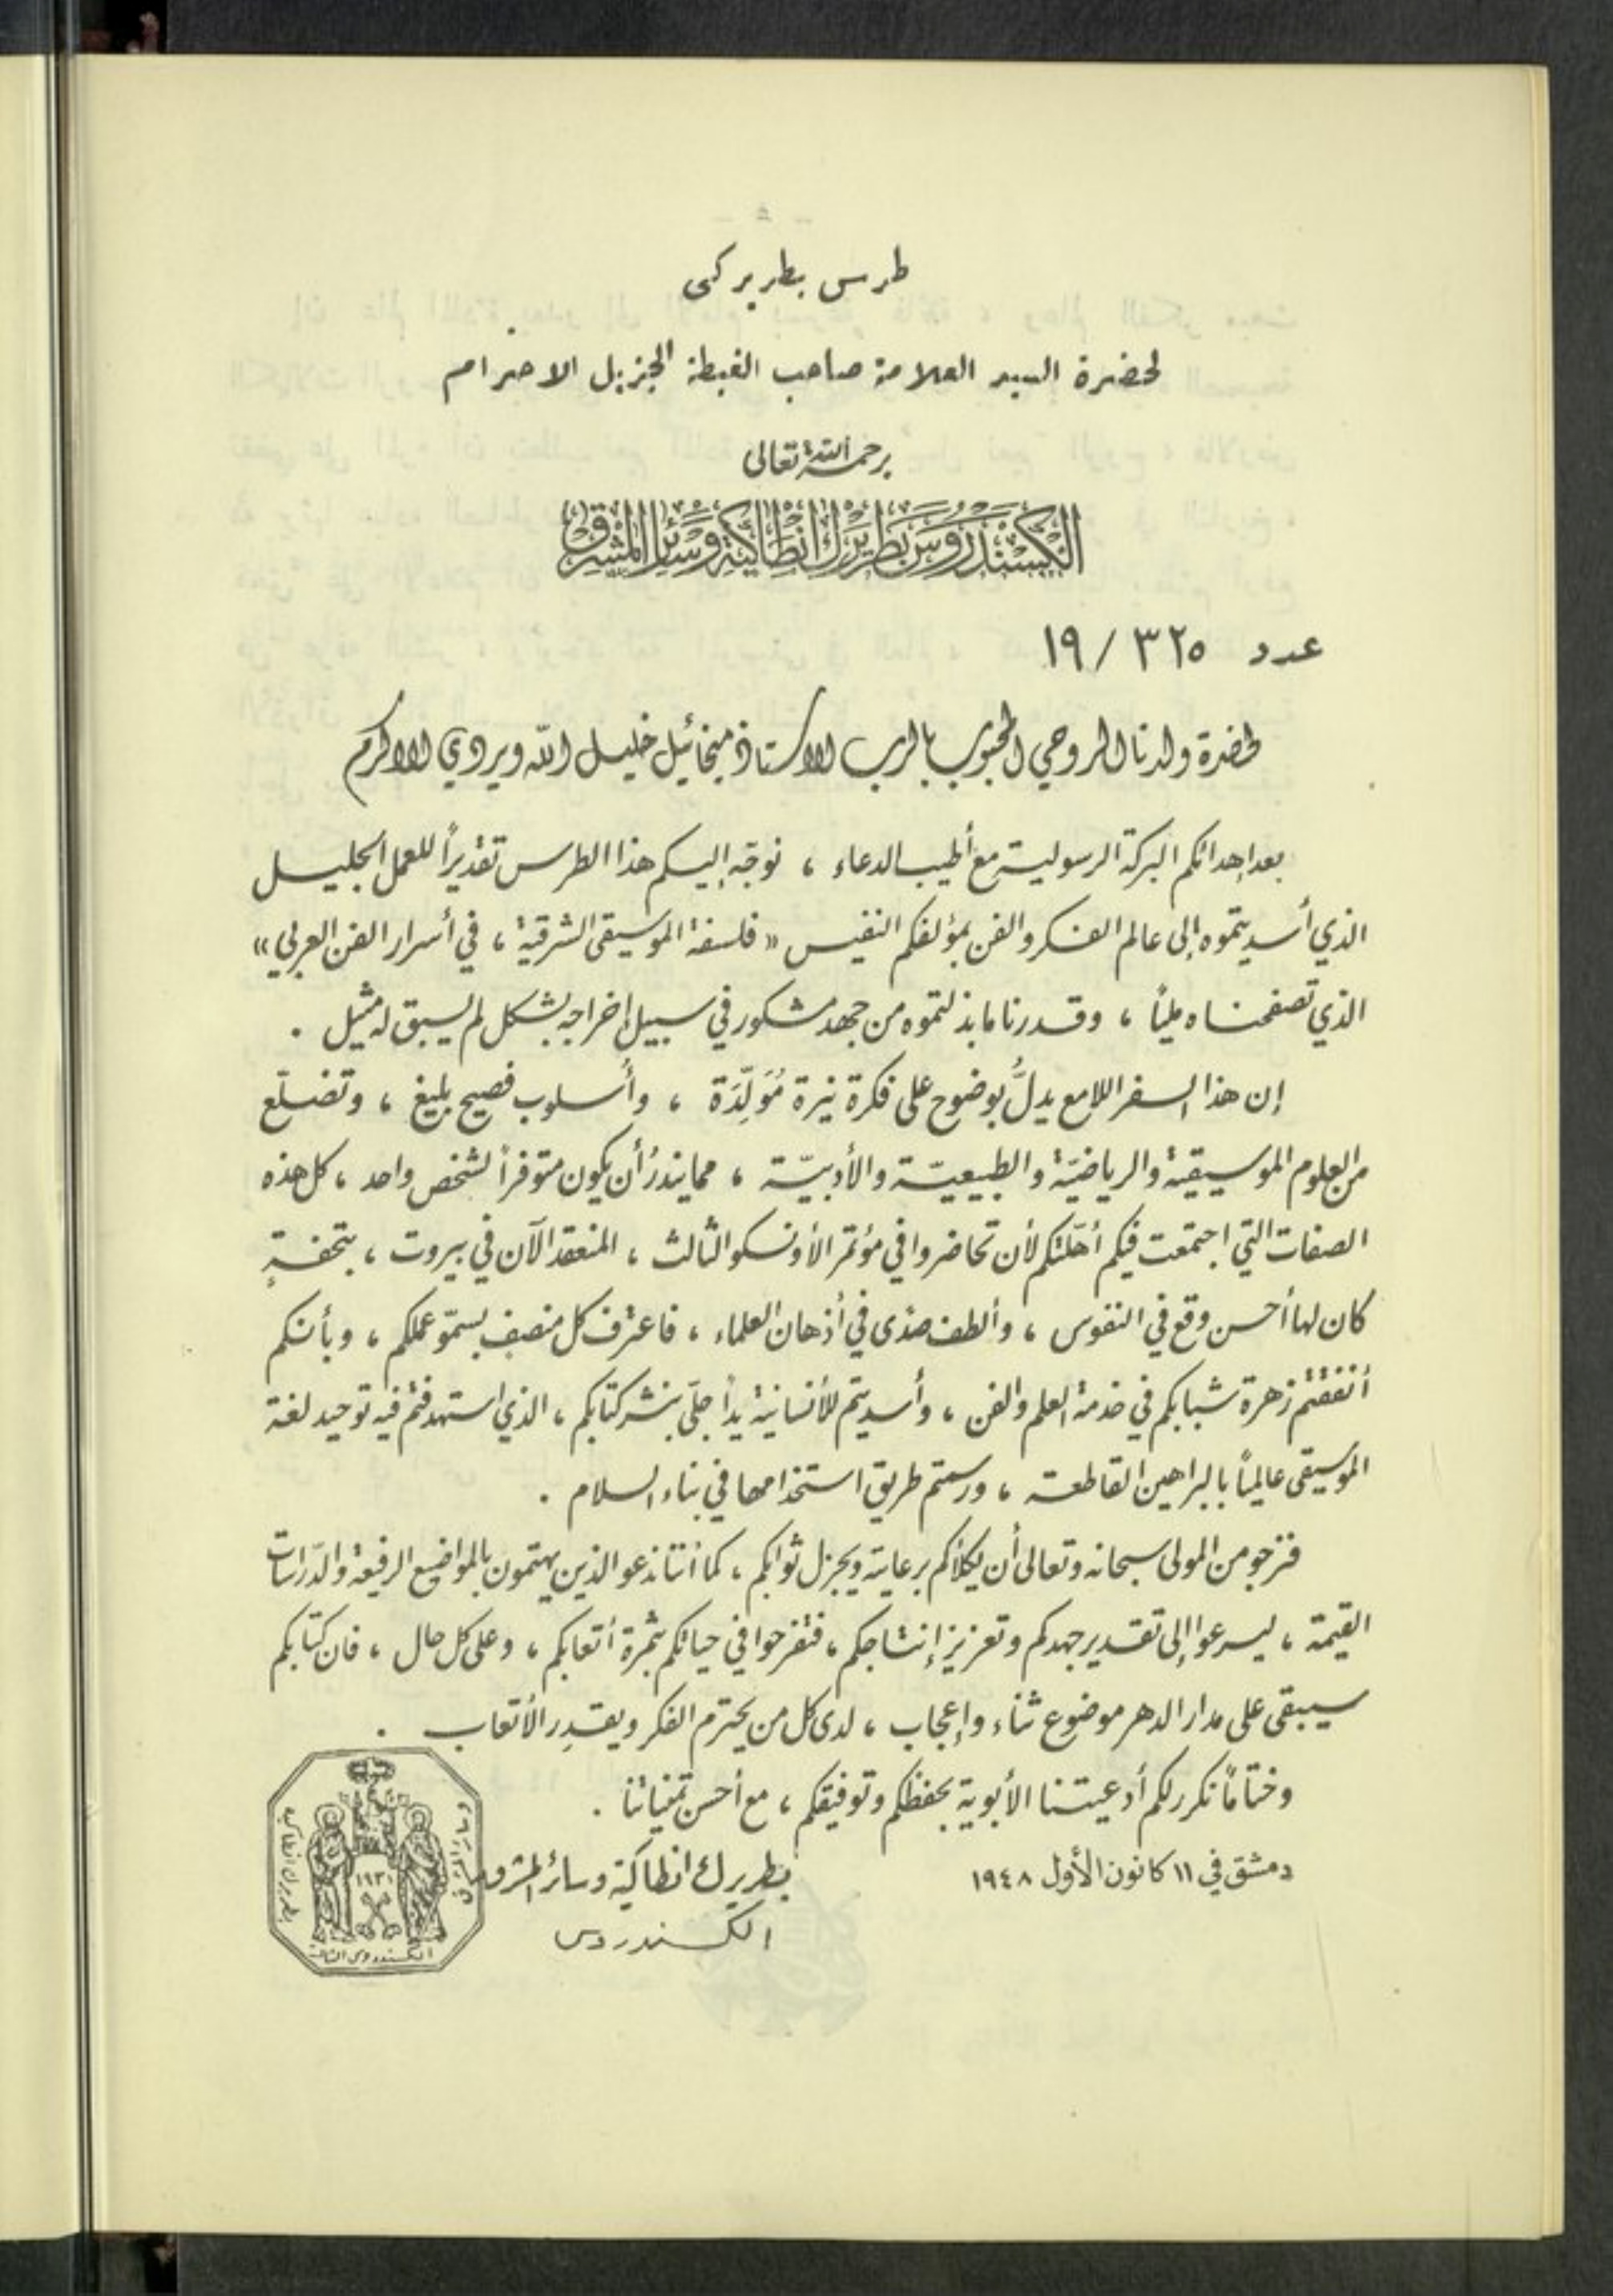 طرس بطريركي
لحضرة السيد العلامة صاحب الغبطة الجزيل الاحترام
برحمة الله تعالى
الكسندروس بطريرك انطاكية وسائر المشرق
عدد ٣٢٥ / ١٩
لحضرة ولدنا الروحي المحبوب بالرب الاستاذ ميخائيل خليل الله ويردي الاكرم
بعد إهدائكم البركة الرسولية مع أطيب الدعاء ، نوجّه إليكم هذا الطرس تقديراً للعمل الجليل
الذي أسديتموه إلى عالم الفكر والفن بمؤلفكم النفيس « فلسفة الموسيقى الشرقية ، في أسرار الفن العربي »
الذي تصفحناه مليّاً ، وقدرنا ما بذلتموه من جهد مشكور في سبيل إخراجه بشكل لم يسبق له مثيل .
إن هذا السفر اللامع يدلُّ بوضوح على فكرة نيرة مُوَلِّدَة ، وأسلوب فصيح بليغ ، وتضلّع
من العلوم الموسيقية والرياضيّة والطبيعيّة والأدبيّة ، مما يندرُ أن يكون متوفراً لشخص واحد ، كل هذه
الصفات التي اجتمعت فيكم أهّلتكم لأن تحاضروا في مؤتمر الأونسكو الثالث ، المنعقد الآن في بيروت ، بتحفةٍ
كان لها أحسن وقع في النفوس ، وألطف صدًى في أذهان العلماء ، فاعترف كل منصف بسموّ عملكم ، وبأنكم
أنفقتم زهرة شبابكم في خدمة العلم والفن ، وأسديتم للأنسانية يداً جلّى بنشر كتابكم ، الذي استهدفتم فيه توحيد لغة
الموسيقى عالميّاً بالبراهين القاطعة ، ورسمتم طريق استخدامها في بناء السلام .
فنرجو من المولى سبحانه وتعالى أن يكلأكم برعايته ويجزل ثوابكم ، كما أننا ندعو الذين يهتمون بالمواضيع الرفيعة والدّراسات
القيمة ، ليسرعوا إلى تقدير جهدكم وتعزيز إنتاجكم ، فتفرحوا في حياتكم بثمرة أتعابكم ، وعلى كل حال ، فان كتابكم
سيبقى على مدار الدهر موضوع ثناء وإعجاب ، لدى كل من يحترم الفكر ويقدِر الأتعاب .
وختاماً نكرر لكم أدعيتنا الأبوية بحفظكم وتوفيقكم ، مع أحسن تمنياتنا .
دمشق في ١١ كانون الأول ١٩٤٨
بطريرك انطاكية وسائر المشرق
الكسندروس
بطريرك انطاكية
١٩٣١
الكسندروس الثالث